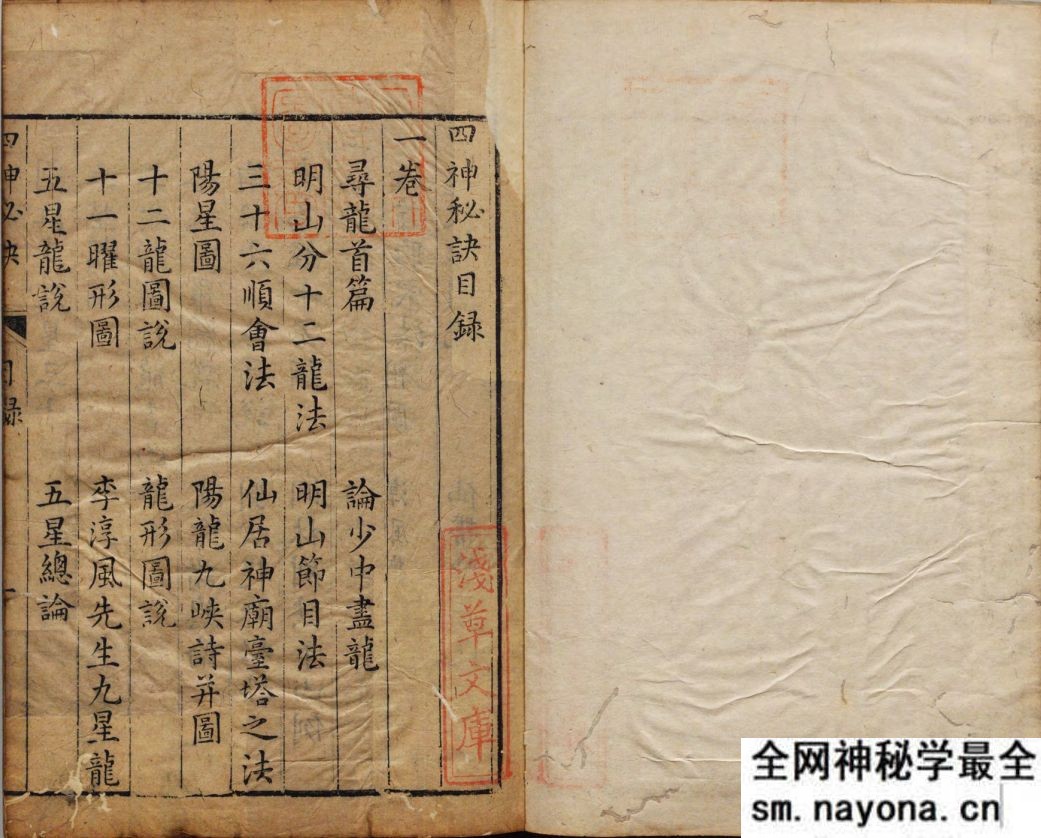 四神秘訣目録
一卷
尋龍首篇 論少中盡龍
明山分十二龍法 明山節目法
三十六順會法 仙居神廟臺塔之法
陽星圖 陽龍九峽詩并圖
十二龍圖説 龍形圖説
十一曜形圖 李淳風先生九星龍
五星龍説 五星總論
四神必決 目録
淺草文庫
全网神秘学最全
sm.nayona.cn